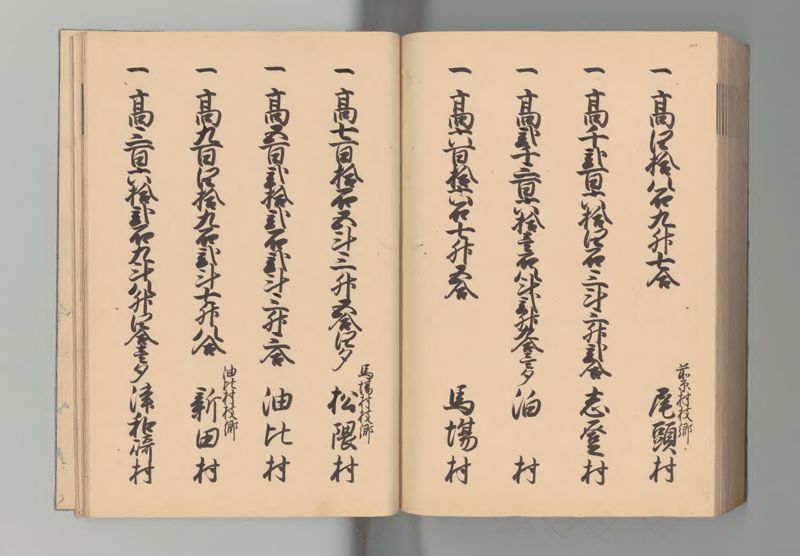 一 高四拾八石九升七合 前原村枝郷 尾頭村
一 高千弐百六拾四石三斗三升弐合 志登村
一 高弐千三百六拾壱石八斗弐升 合壱夕 泊村
一 高六百拾六石七升五合 馬場村
一 高七百拾石五斗三升五合四夕 馬場村枝郷 松隈村
一 高五百弐拾弐石弐斗三升三合 油比村
一 高九百四拾九石弐斗七升八合 油比村枝郷 新田村
一 高三百六拾弐石九斗八升四合壱夕 津和崎村